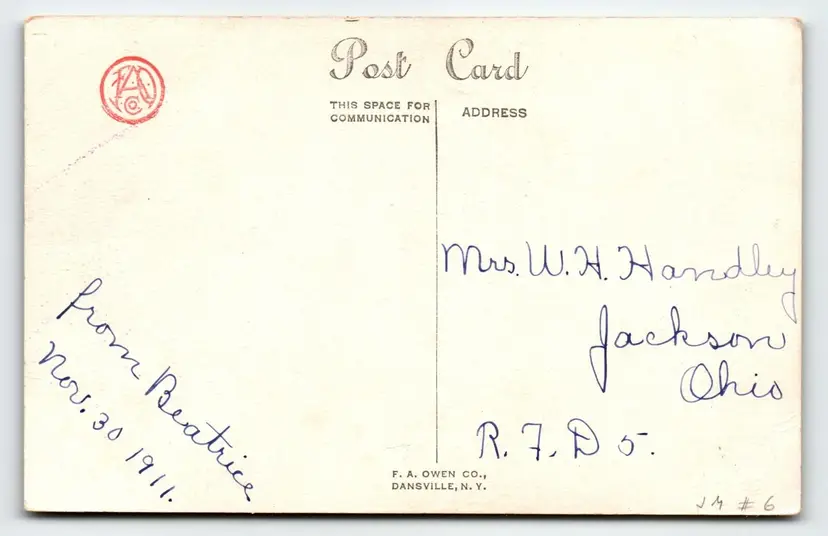 Post Card
THIS SPACE FOR
COMMUNICATION
ADDRESS
FAO
Co.
from Beatrice
Nov. 30 1911.
Mrs. W. H. Handley
Jackson
Ohio
R. F. D 5.
F. A. OWEN CO.,
DANSVILLE, N. Y.
JM # 6